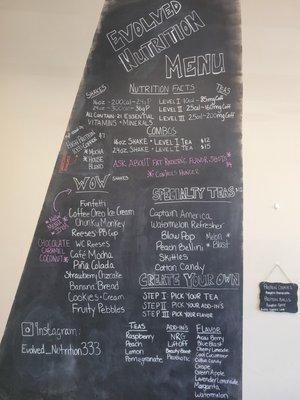 EVOLVED
NUTRITION
MENU
NUTRITION FACTS
SHAKES
16oz - 200cal - 24P
24oz - 300cal - 36P
ALL CONTAIN 21 ESSENTIAL
VITAMINS + MINERALS
TEAS
LEVEL I 10cal - 85mg caff
LEVEL II 25cal - 160mg caff
LEVEL III 25cal - 200mg caff
COMBOS
16oz SHAKE + LEVEL I TEA $12
24oz SHAKE + LEVEL I TEA $15
ASK ABOUT FAT REDUCING FLAVOR SHOTS
* CONTROLS HUNGER
HIGH PROTEIN
ICED COFFEE $7
* MOCHA
* HOUSE
BLEND
WOW SHAKES
Funfetti
Coffee Oreo Ice Cream
Chunky Monkey
Reeses PB Cup
WC Reeses
Café Mocha
Piña Colada
Strawberry Cheesecake
Banana Bread
Cookies + Cream
Fruity Pebbles
New
CHOCOLATE
CARAMEL
COCONUT
SPECIALTY TEAS
Captain America
Watermelon Refresher
Blow Pop
Peach Bellini
Skittles
Cotton Candy
Mega
Blast
CREATE YOUR OWN
STEP I PICK YOUR TEA
STEP II PICK YOUR ADD-INS
STEP III PICK YOUR FLAVOR
TEAS
Raspberry
Peach
Lemon
Pomegranate
ADD-INS
NRG
Liftoff
Beauty Boost
Probiotic
FLAVOR
Acai Berry
Blue Blast
Cherry Limeade
Cool Cucumber
Cotton Candy
Grape
Green Apple
Lavender Lemonade
Margarita
Watermelon
Instagram:
Evolved_Nutrition333
PROTEIN COOKIES
PROTEIN BALLS